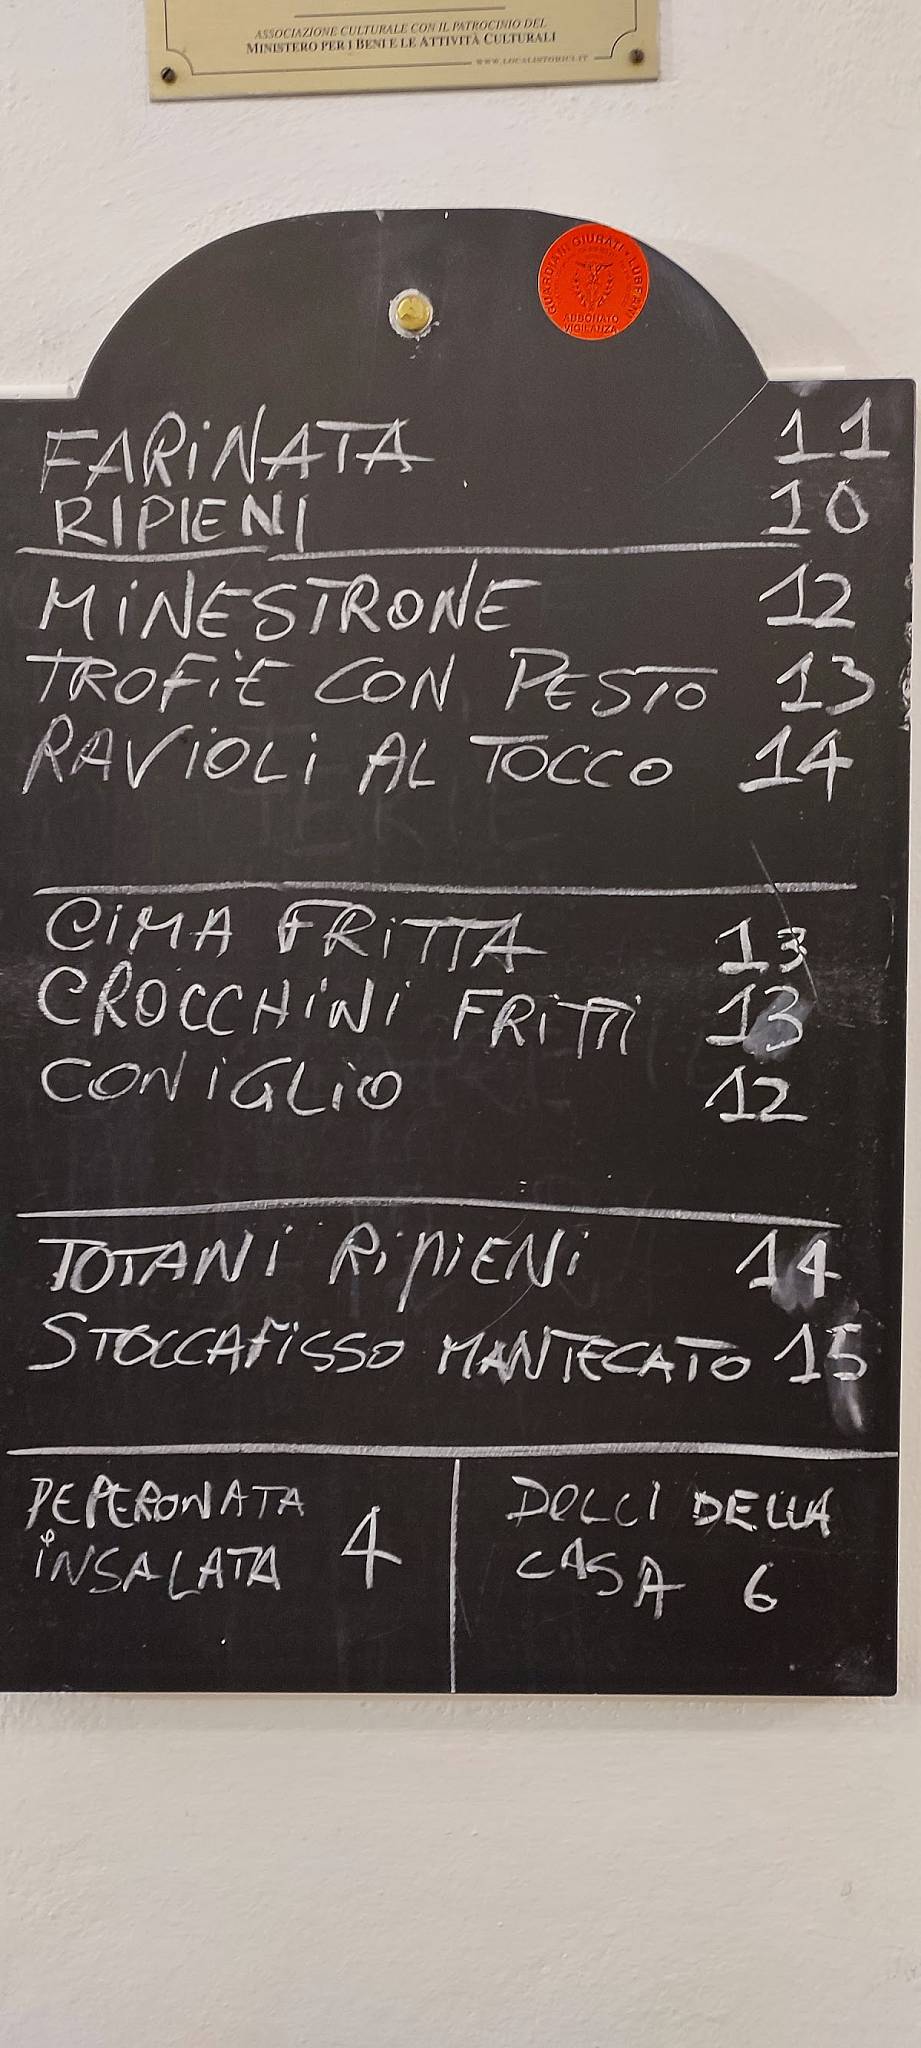 ASSOCIAZIONE CULTURALE CON IL PATROCINIO DEL
MINISTERO PER I BENI E LE ATTIVITÀ CULTURALI
WWW.LOCALISTORICI.IT
GUARDIANI GIURATI • LUBRANI
ABBONATO
VIGILANZA
FARiNATA 11
RIPIENI 10
MiNESTRONE 12
TROFiE CON PESTO 13
RAVIOLi AL TOCCO 14
CiMA FRiTTA 13
CROCCHiNi FRiTTi 13
CONiGLiO 12
TOTANi RiPiENi 14
STOCCAFiSSO MANTECATO 15
PEPERONATA
iNSALATA 4
DOLCI DELLA
CASA 6